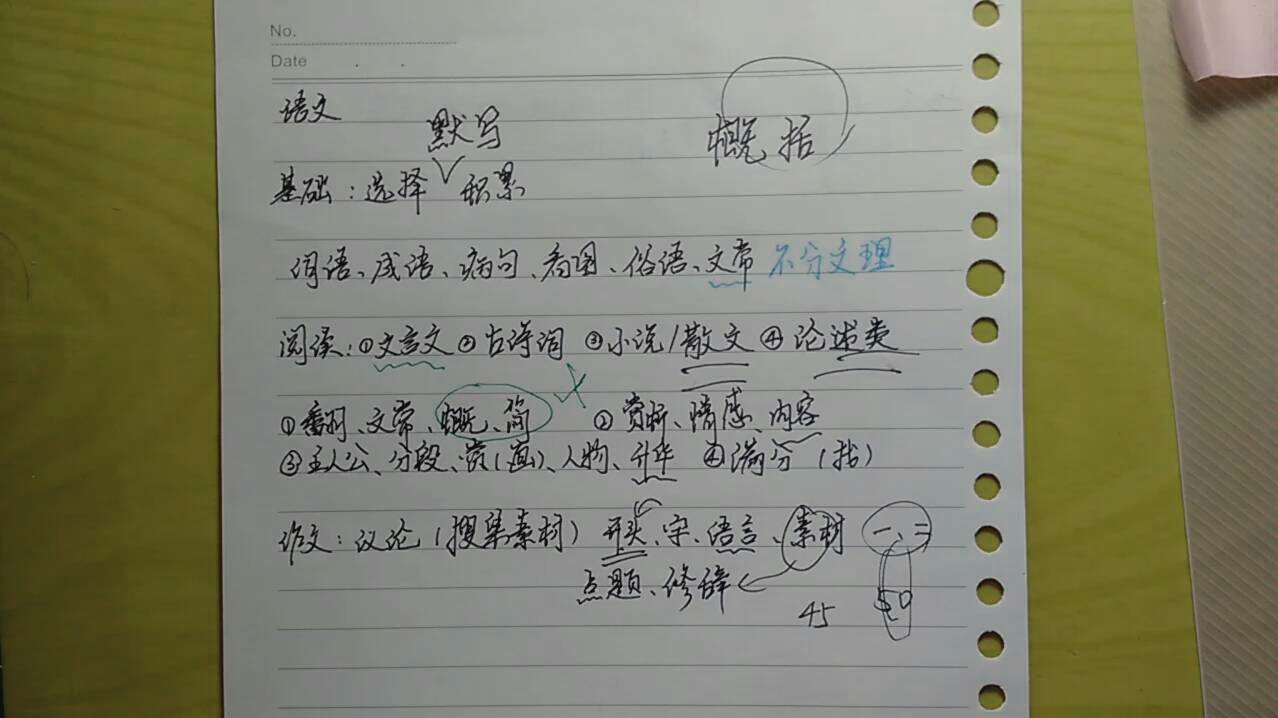 No.
Date
语文
默写
概括
基础：选择 积累
词语、成语、病句、看图、俗语、文常 不分文理
阅读：①文言文 ②古诗词 ③小说/散文 ④论述类
①翻、文常、概、简 ②赏析、情感、内容
③主人公、分段、赏(画)、人物、升华 ④满分(括)
作文：议论(搜集素材) 开头、字、语言、素材 一、二
点题、修辞
45 50